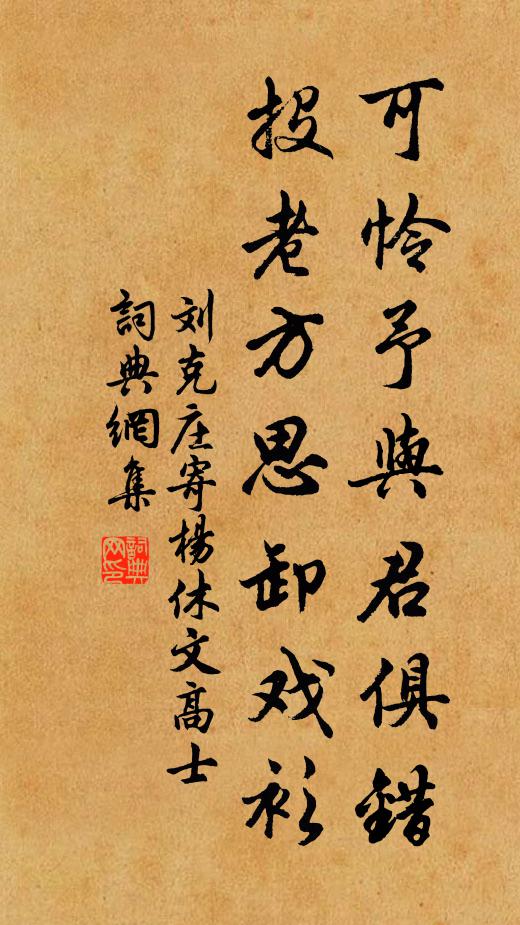 可怜予與君俱錯
投老方思卸戏衫
刘克庄寄楊休文高士
詞典網集
詞典网印